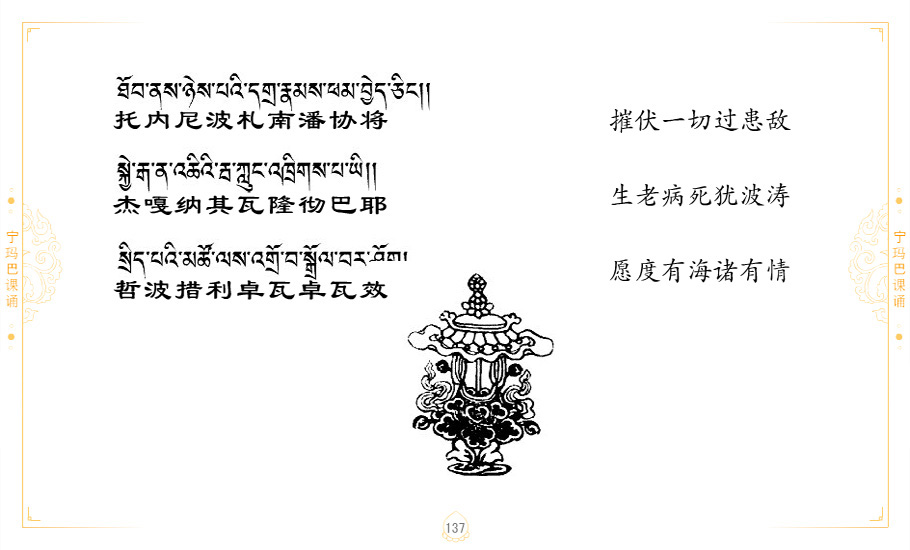 ཐོབ་ནས་ཉེས་པའི་དགྲ་རྣམས་ཕམ་བྱེད་ཅིང༌།།
托内尼波札南潘协将
摧伏一切过患敌
སྐྱེ་རྒ་ན་འཆིའི་རྦ་ཀློང་འཁྲིགས་པ་ཡི།།
杰嘎纳其瓦隆彻巴耶
生老病死犹波涛
སྲིད་པའི་མཚོ་ལས་འགྲོ་བ་སྒྲོལ་བར་ཤོག།
哲波措利卓瓦卓瓦效
愿度有海诸有情
宁玛巴课诵
宁玛巴课诵
137